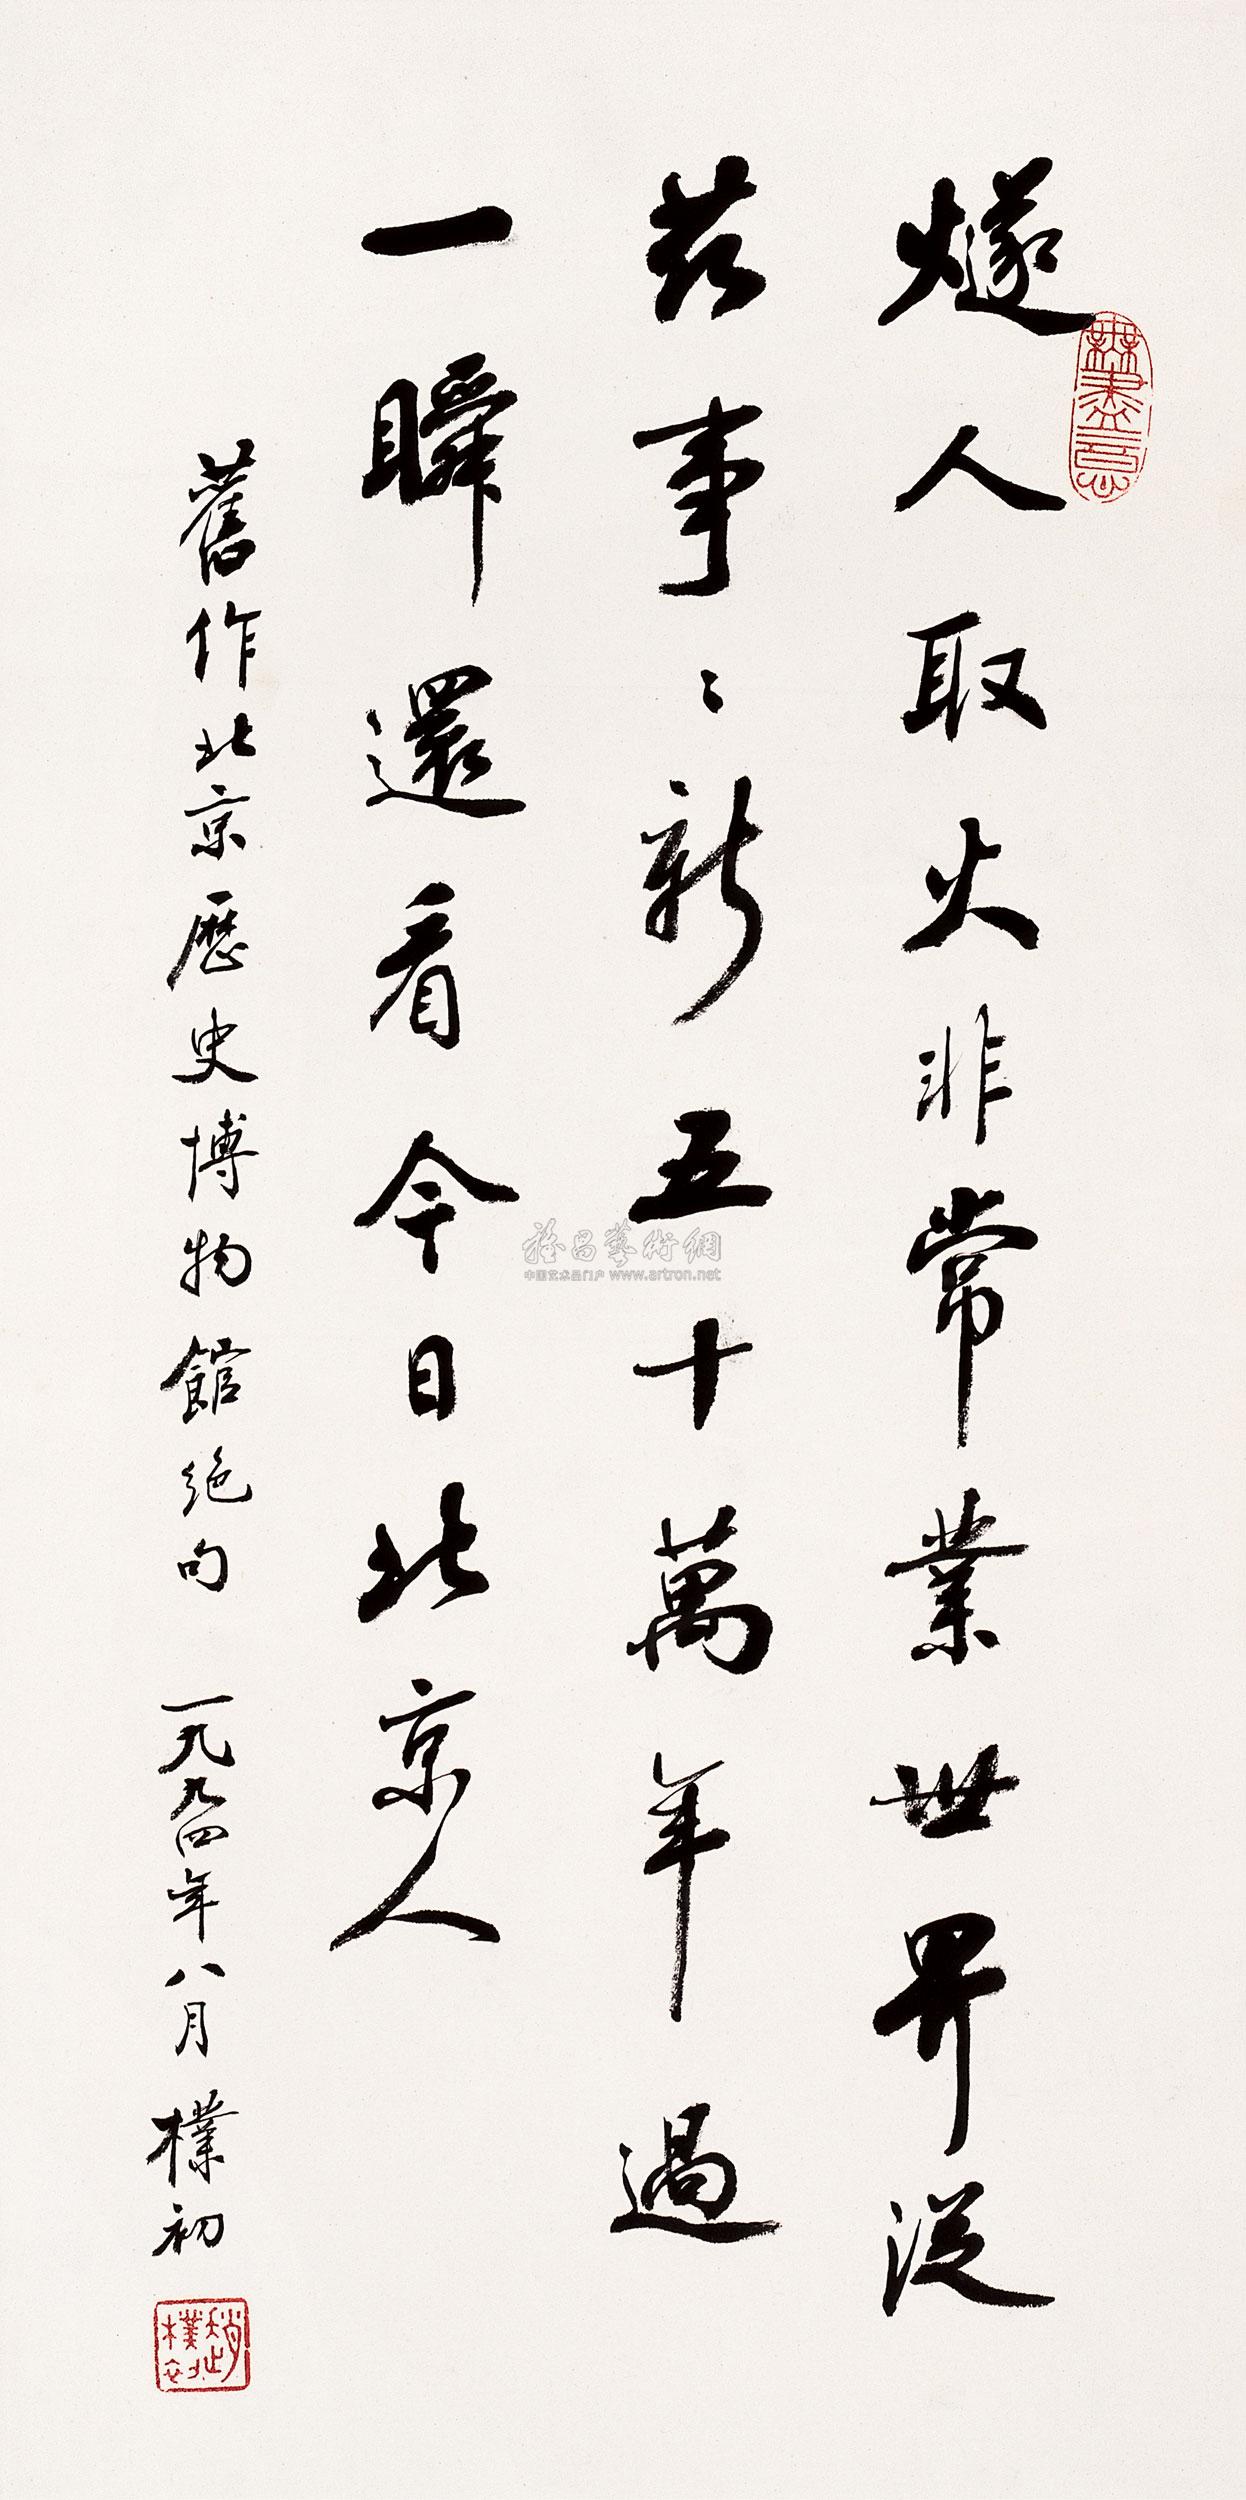 燧人取火非常業世界從
茲事〻新五十萬年過
一瞬還看今日北京人
舊作北京歷史博物館絕句 一九九四年八月 樸初
無盡意
趙樸初
雅昌藝術網
中国艺术品门户 www.artron.net